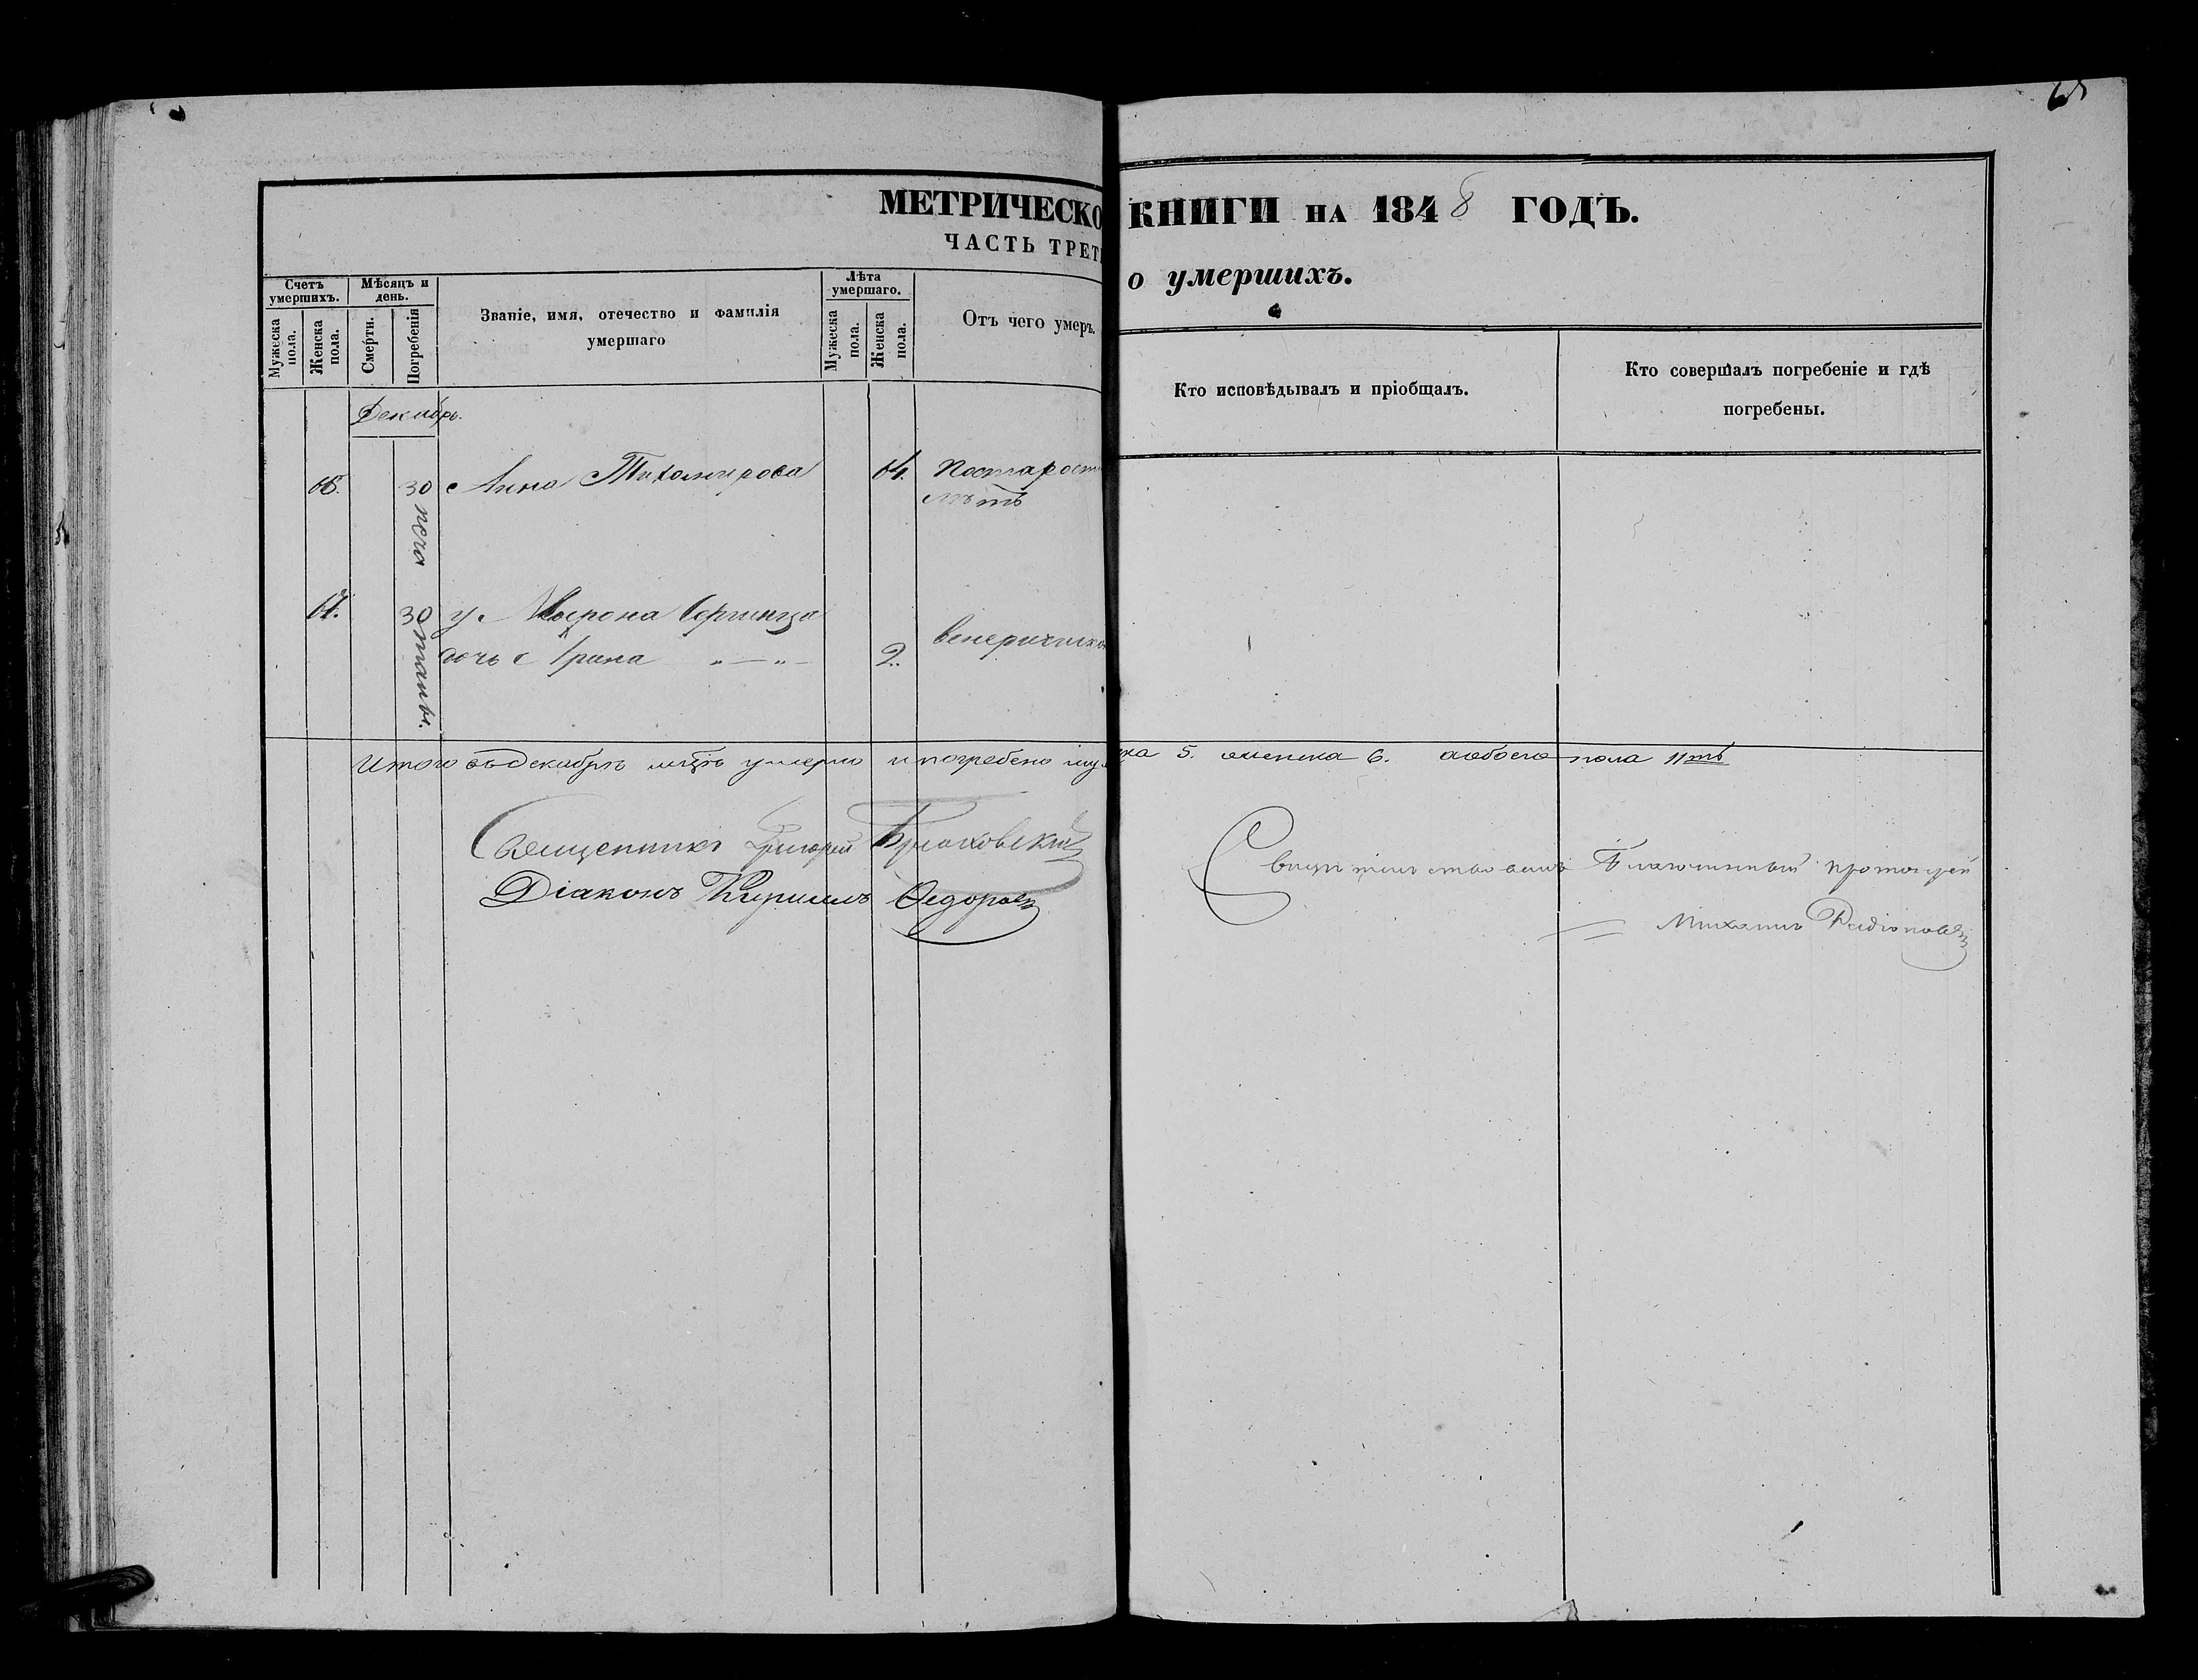 МЕТРИЧЕСКО КНИГИ НА 1848 ГОДЪ.
ЧАСТЬ ТРЕТ
о умершихъ.
Счетъ умершихъ.
Мужеска пола.
Женска пола.
Мѣсяцъ и день.
Смерти.
Погребенія
Званіе, имя, отечество и фамилія
умершаго
Лѣта умершаго.
Мужеска пола.
Женска пола.
Отъ чего умеръ.
Кто исповѣдывалъ и пріобщалъ.
Кто совершалъ погребеніе и гдѣ
погребены.
Декабрь.
66. 30 Анна Тихомирова 64. По старости
лѣтъ
67. 30 у
дочь Ирина „—„— 2. венерическо
Итого въ Декабрѣ мцѣ умерло и погребено му ска 5. женска 6. а обоего пола 11ть
Священникъ Григорій
Діаконъ Кириллъ Федоровъ
Свидѣтельствовалъ Благочинный протоіерей
Михаилъ Радіоновъ